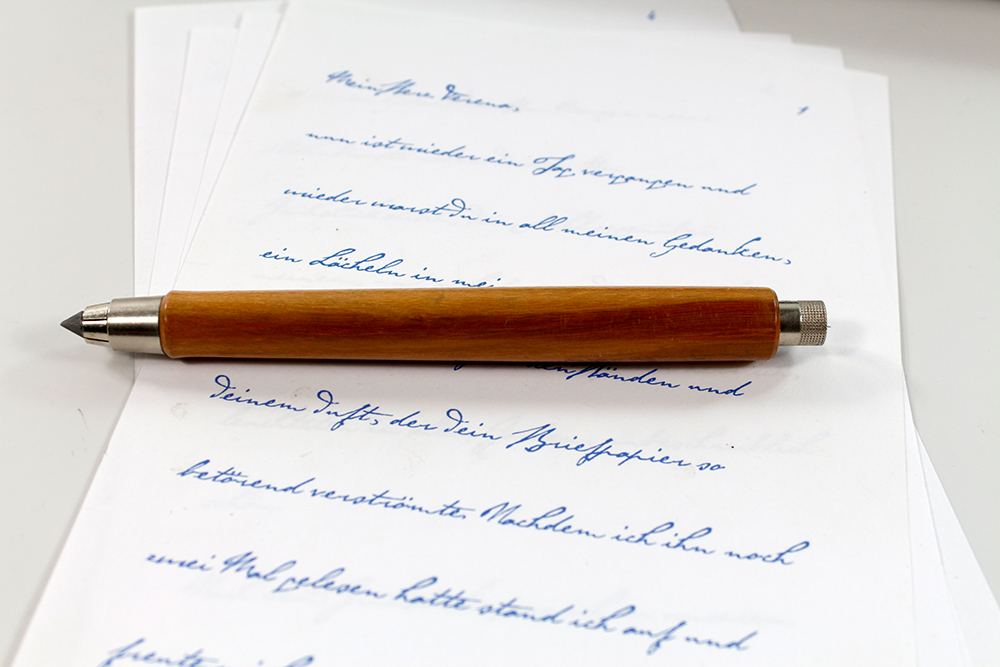 1
Mein Herz Verena,
nun ist wieder ein Tag vergangen und
wieder warst Du in all meinen Gedanken,
ein Lächeln in mei
Händen und
deinem Duft, der dein Briefpapier so
betörend verströmte. Nachdem ich ihn noch
zwei Mal gelesen hatte stand ich auf und